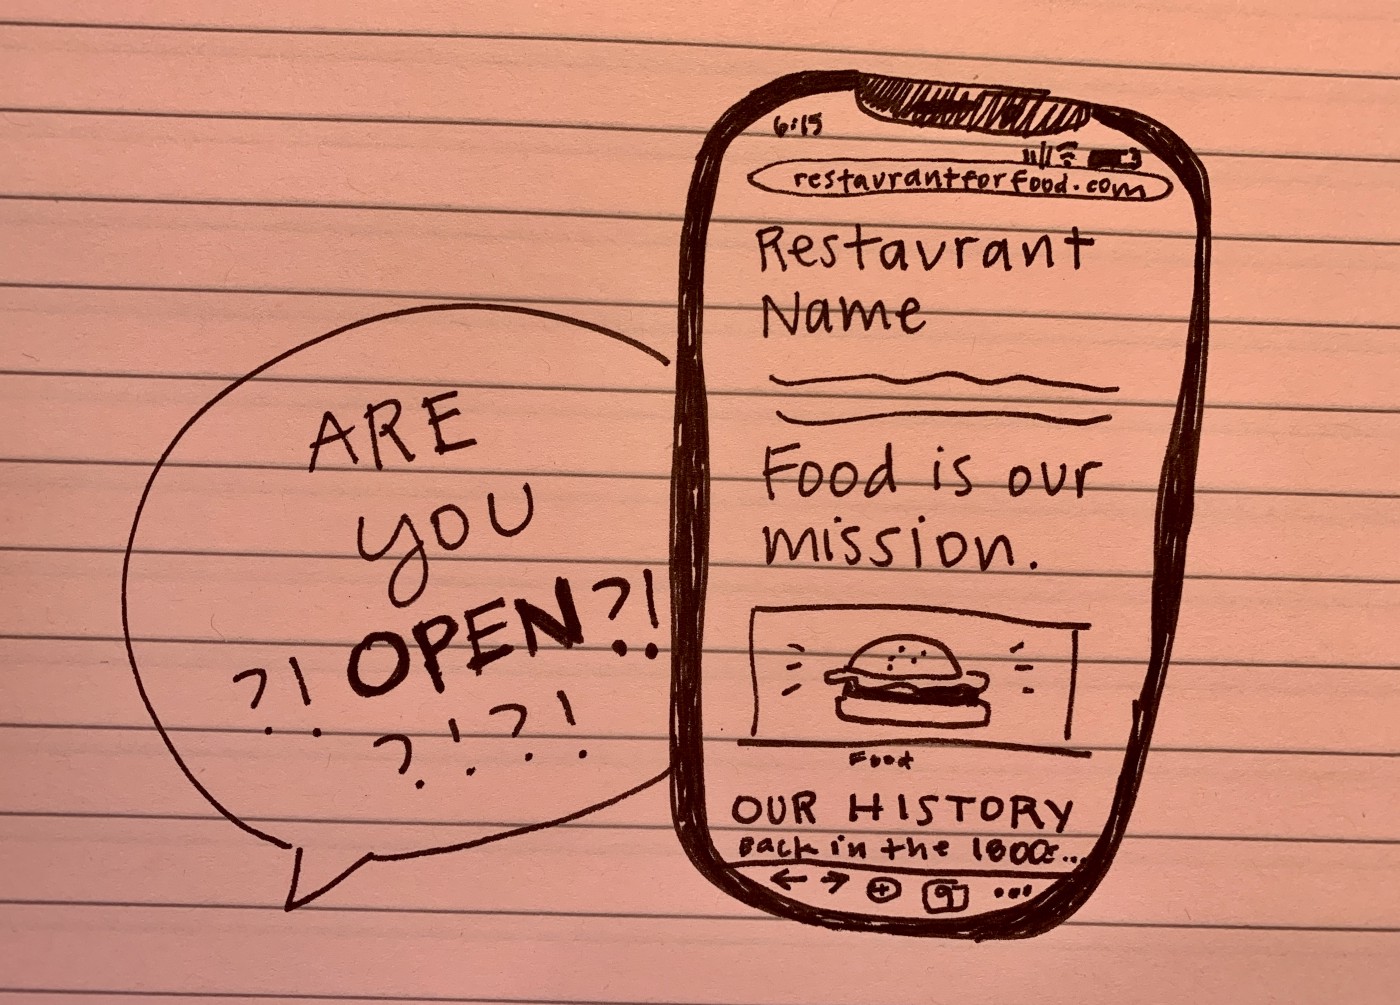 ARE
YOU
OPEN?!
?!
?!?!
6:15
restaurantforfood.com
Restaurant
Name
Food is our
mission.
Food
OUR HISTORY
Back in the 1800s...
9